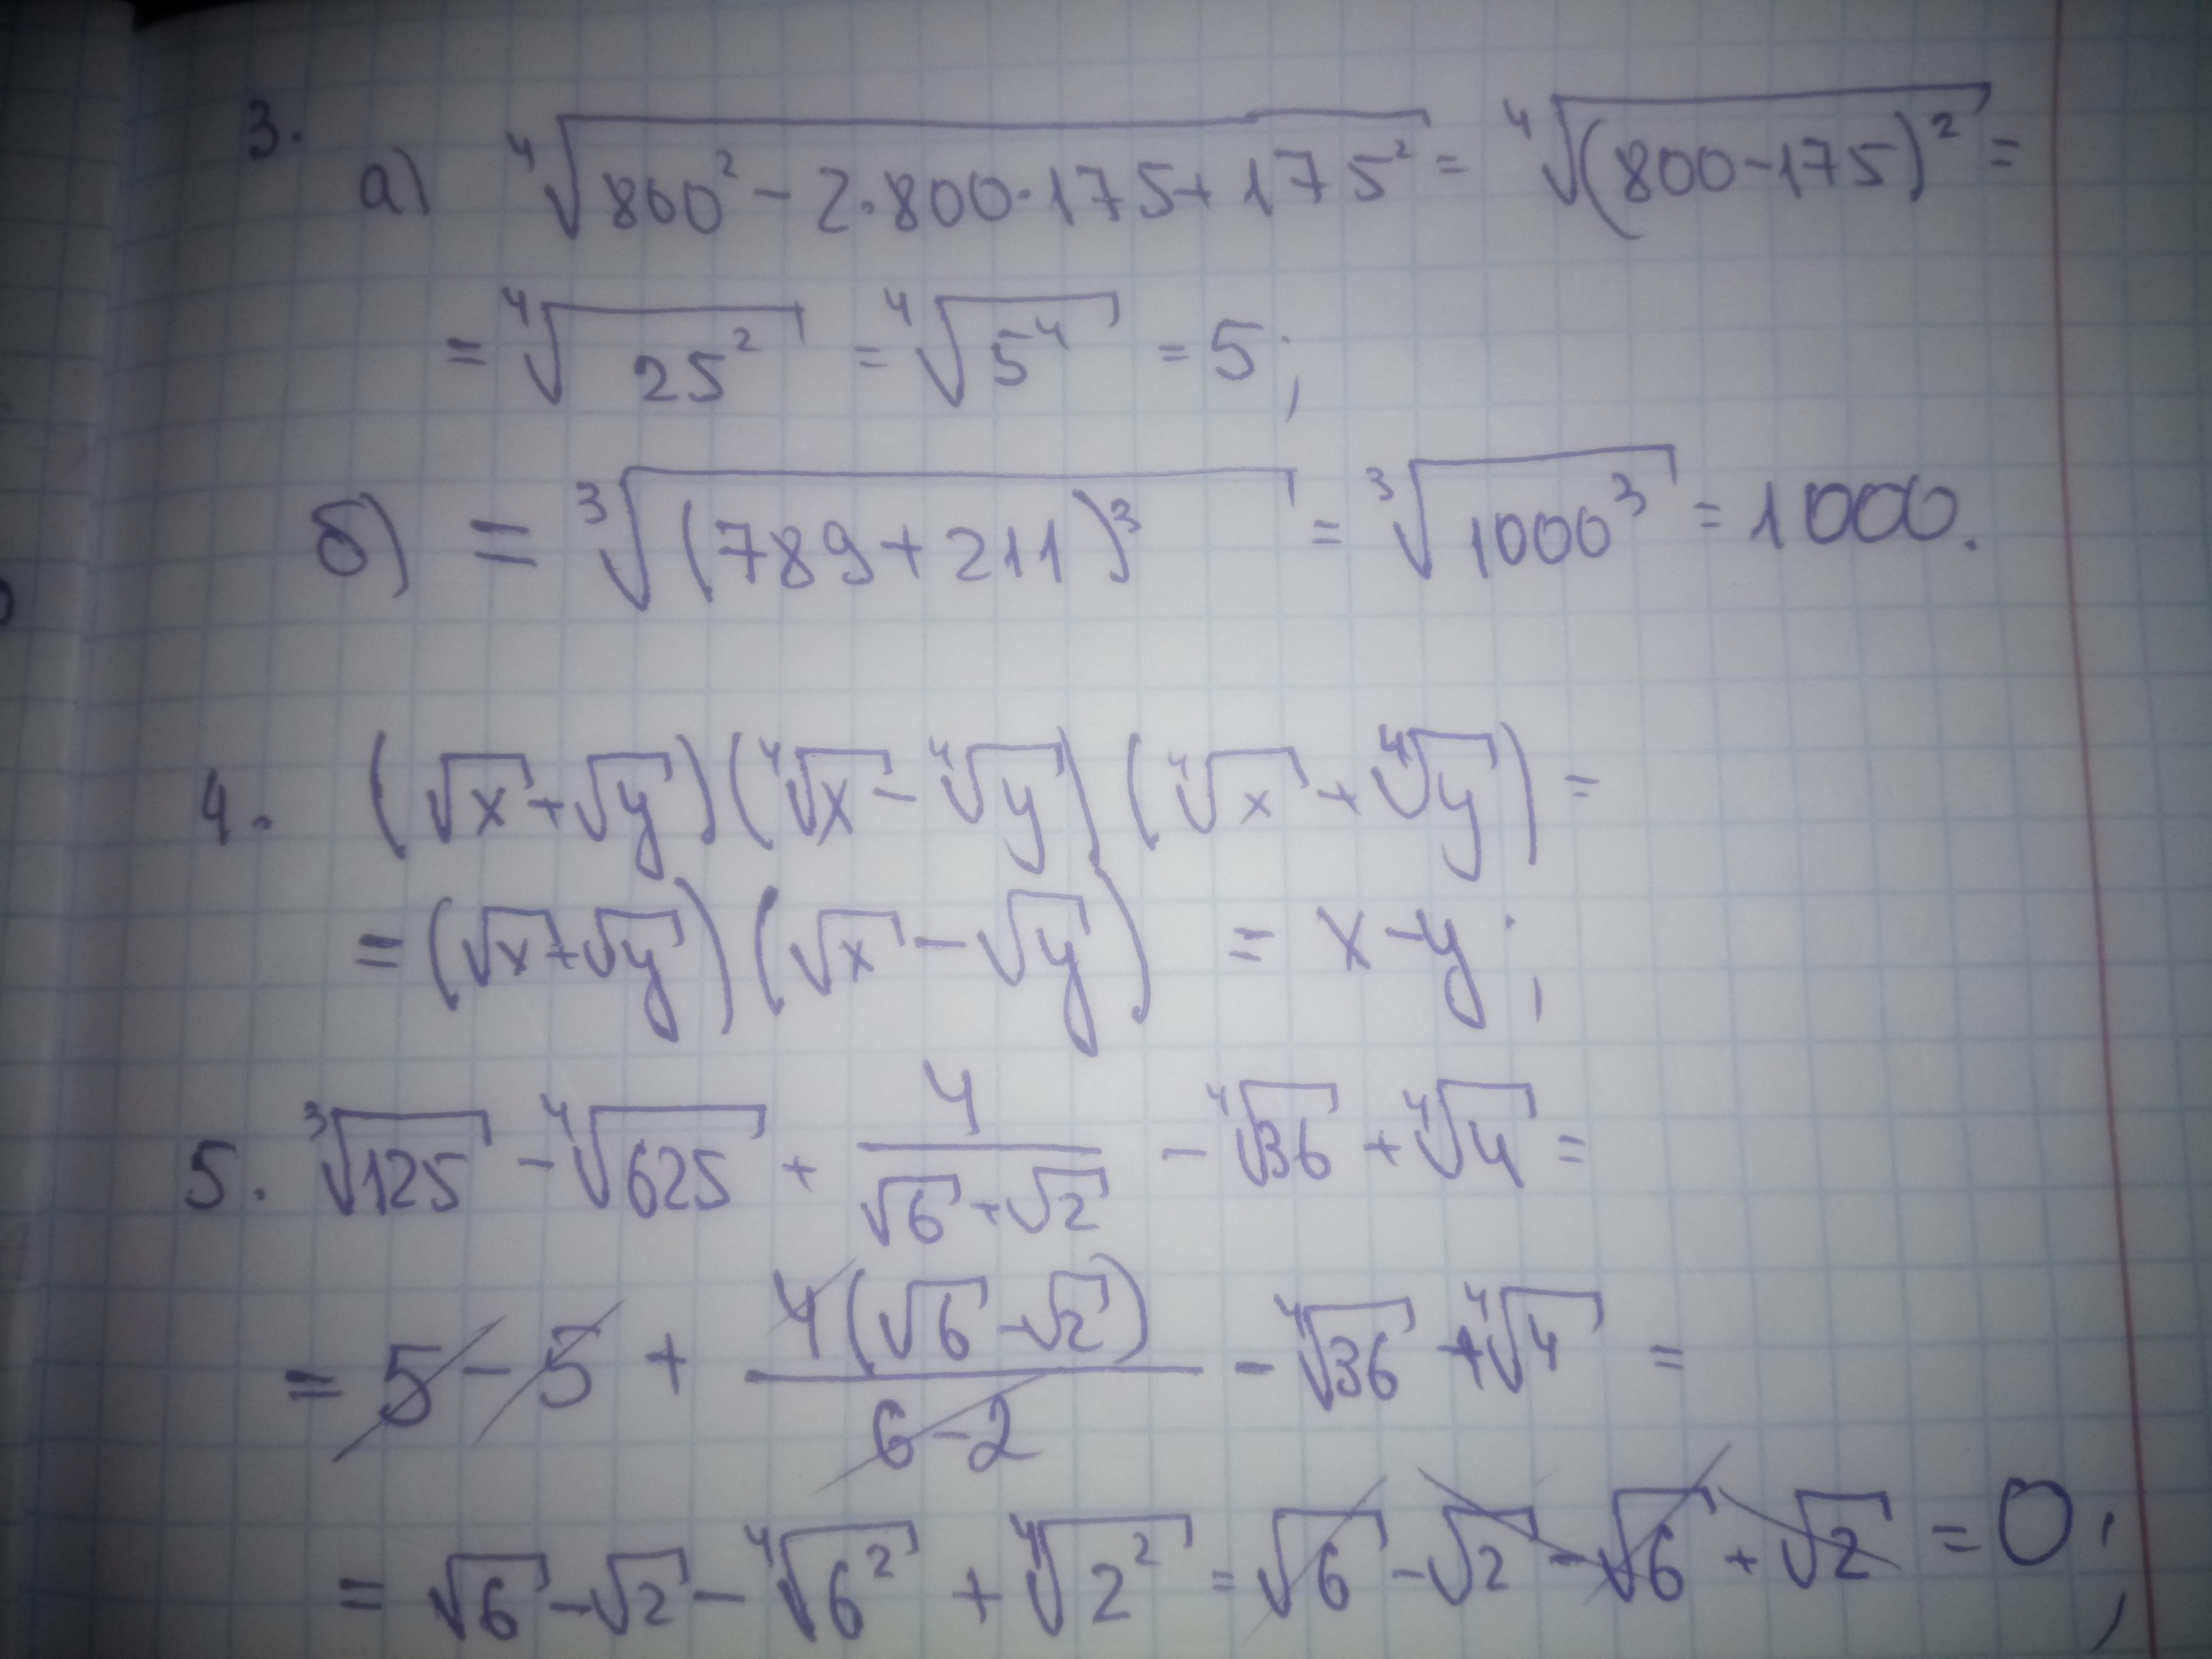 3.
а) ⁴√(800² - 2·800·175 + 175²) = ⁴√((800-175)²) =
= ⁴√(25²) = ⁴√(5⁴) = 5;
б) = ³√((789+211)³) = ³√(1000³) = 1000.
4. (√x + √y)(⁴√x - ⁴√y)(⁴√x + ⁴√y) =
= (√x + √y)(√x - √y) = x - y;
5. ³√125 - ⁴√625 + 4/(√6 + √2) - ⁴√36 + ⁴√4 =
= 5 - 5 + 4(√6 - √2)/(6-2) - ⁴√36 + ⁴√4 =
= √6 - √2 - ⁴√(6²) + ⁴√(2²) = √6 - √2 - √6 + √2 = 0;